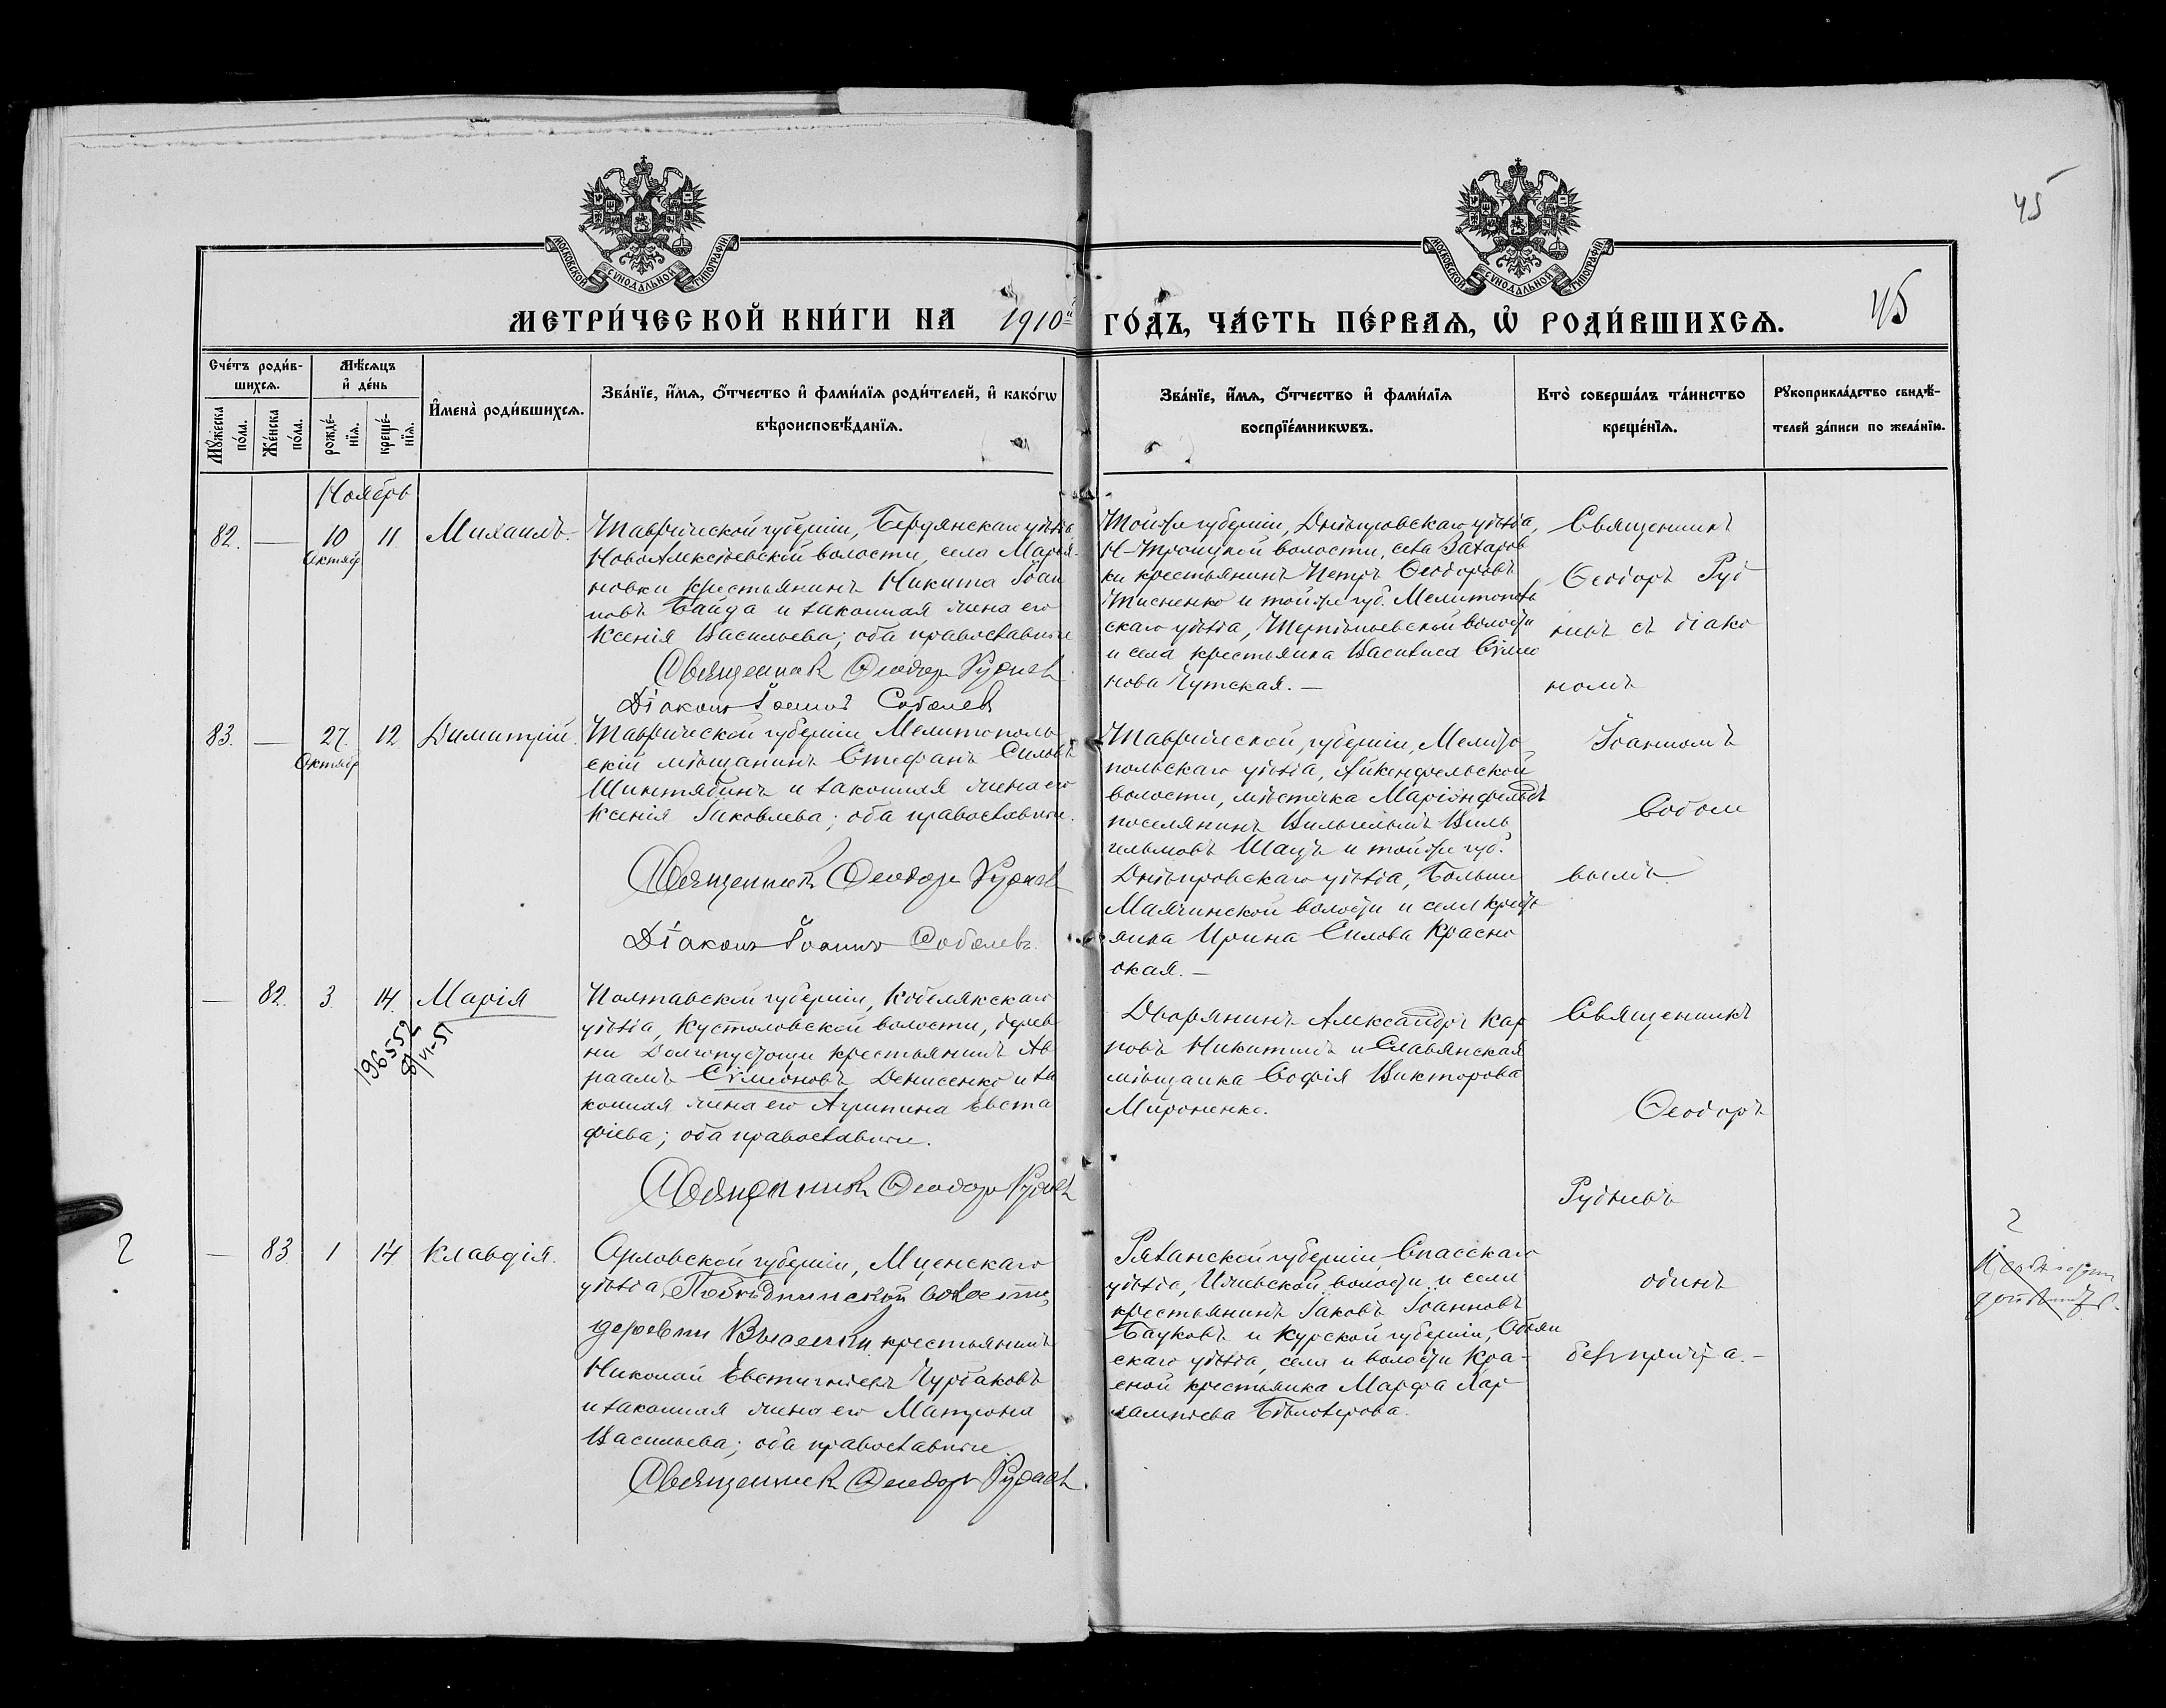 45
МОСКОВСКОЙ СѴНОДАЛЬНОЙ ТИПОГРАФІИ
МОСКОВСКОЙ СѴНОДАЛЬНОЙ ТИПОГРАФІИ
МЕТРИ́ЧЕСКОЙ КНИ́ГИ НА 1910й ГО́ДЪ, ЧА́СТЬ ПЕ́РВАѦ, Ѡ҆ РОДИ́ВШИХСѦ.
45
Сче́тъ роди́в-
шихсѧ.
Мꙋ́жеска по́ла.
Же́нска по́ла.
Мѣ́сѧцъ
и҆ де́нь
рожде́-
нїѧ.
креще́-
нїѧ.
И҆мена̀ роди́вшихсѧ.
Зва́нїе, и҆́мѧ, ѻ҆́тчество и҆ фами́лїѧ роди́телей, и҆ како́гѡ
вѣроисповѣ́данїѧ.
Зва́нїе, и҆́мѧ, ѻ҆́тчество и҆ фами́лїѧ
воспрїе́мникѡвъ.
Кто̀ соверша́лъ та́инство
креще́нїѧ.
Рꙋкоприкла́дство свидѣ́-
телей за́писи по жела́нїю.
Ноябрь
82. — 10 Октяб. 11. Михаилъ.
Таврической губерніи, Бердянскаго уѣзда,
НовоАлексѣевской волости, села Марья-
новки крестьянинъ Никита Іоан
новъ Байда и законная жена его
Ксенія Васильева; оба православные
Священникъ Ѳеодоръ Рудневъ
Діаконъ Іоаннъ Соболевъ
Той же губерніи, Днѣпровскаго уѣзда,
Н-Троицкой волости, села Захаров
ки крестьянинъ Петръ Ѳеодоровъ
и той же губ. Мелитополь
скаго уѣзда, волости
и села крестьянка Василиса Сѵмео
нова Чутская. —
Священникъ
Ѳеодоръ Руд
невъ съ діако
номъ
83. — 27. Октяб. 12 Димитрій.
Таврической губерніи Мелитополь
скій мѣщанинъ Стефанъ Силовъ
Шинтябинъ и законная жена его
Ксенія Іаковлева; оба православные.
Священникъ Ѳеодоръ Рудневъ
Діаконъ Іоаннъ Соболевъ.
Таврической губерніи, Мелито
польскаго уѣзда, Айкенфельской
волости, мѣстечка Маріенфельдъ
поселянинъ Вильгельмъ Виль
гельмовъ Шацъ и той же губ.
Днѣпровскаго уѣзда, Больше
Маячинской волости и села кресть
янка Ирина Силова Красно
ская. —
Іоанномъ
Соболе
вымъ.
— 82. 3. 14. Марія
196552
8/VI-51
Полтавской губерніи, Кобелякскаго
уѣзда, Кустоловской волости, дерев
ни Долгопустоши крестьянинъ Ав
раамъ Сѵмеоновъ Денисенко и за
конная жена его Агрипина Евста
фіева; оба православные.
Священникъ Ѳеодоръ Рудневъ
Дворянинъ Александръ Кар
повъ Никитинъ и Славянская
мѣщанка Софія Викторова
Мироненко.
Священникъ
Ѳеодоръ
Рудневъ
2
— 83 1 14 Клавдія.
Орловской губерніи, Мценскаго
уѣзда, волости,
деревни Выселки крестьянинъ
Николай Евстигнѣевъ Чурбаковъ
и законная жена его Матрона
Васильева; оба православные.
Священникъ Ѳеодоръ Рудневъ.
Рязанской губерніи Спасскаго
уѣзда, Ижевской волости и села
крестьянинъ Іаковъ Іоанновъ
Бауковъ и Курской губерніи, Обоян
скаго уѣзда, села и волости Кра-
сной крестьянка Марѳа Хар
лампіева Бѣлозерова.
одинъ
безъ причта. —
2